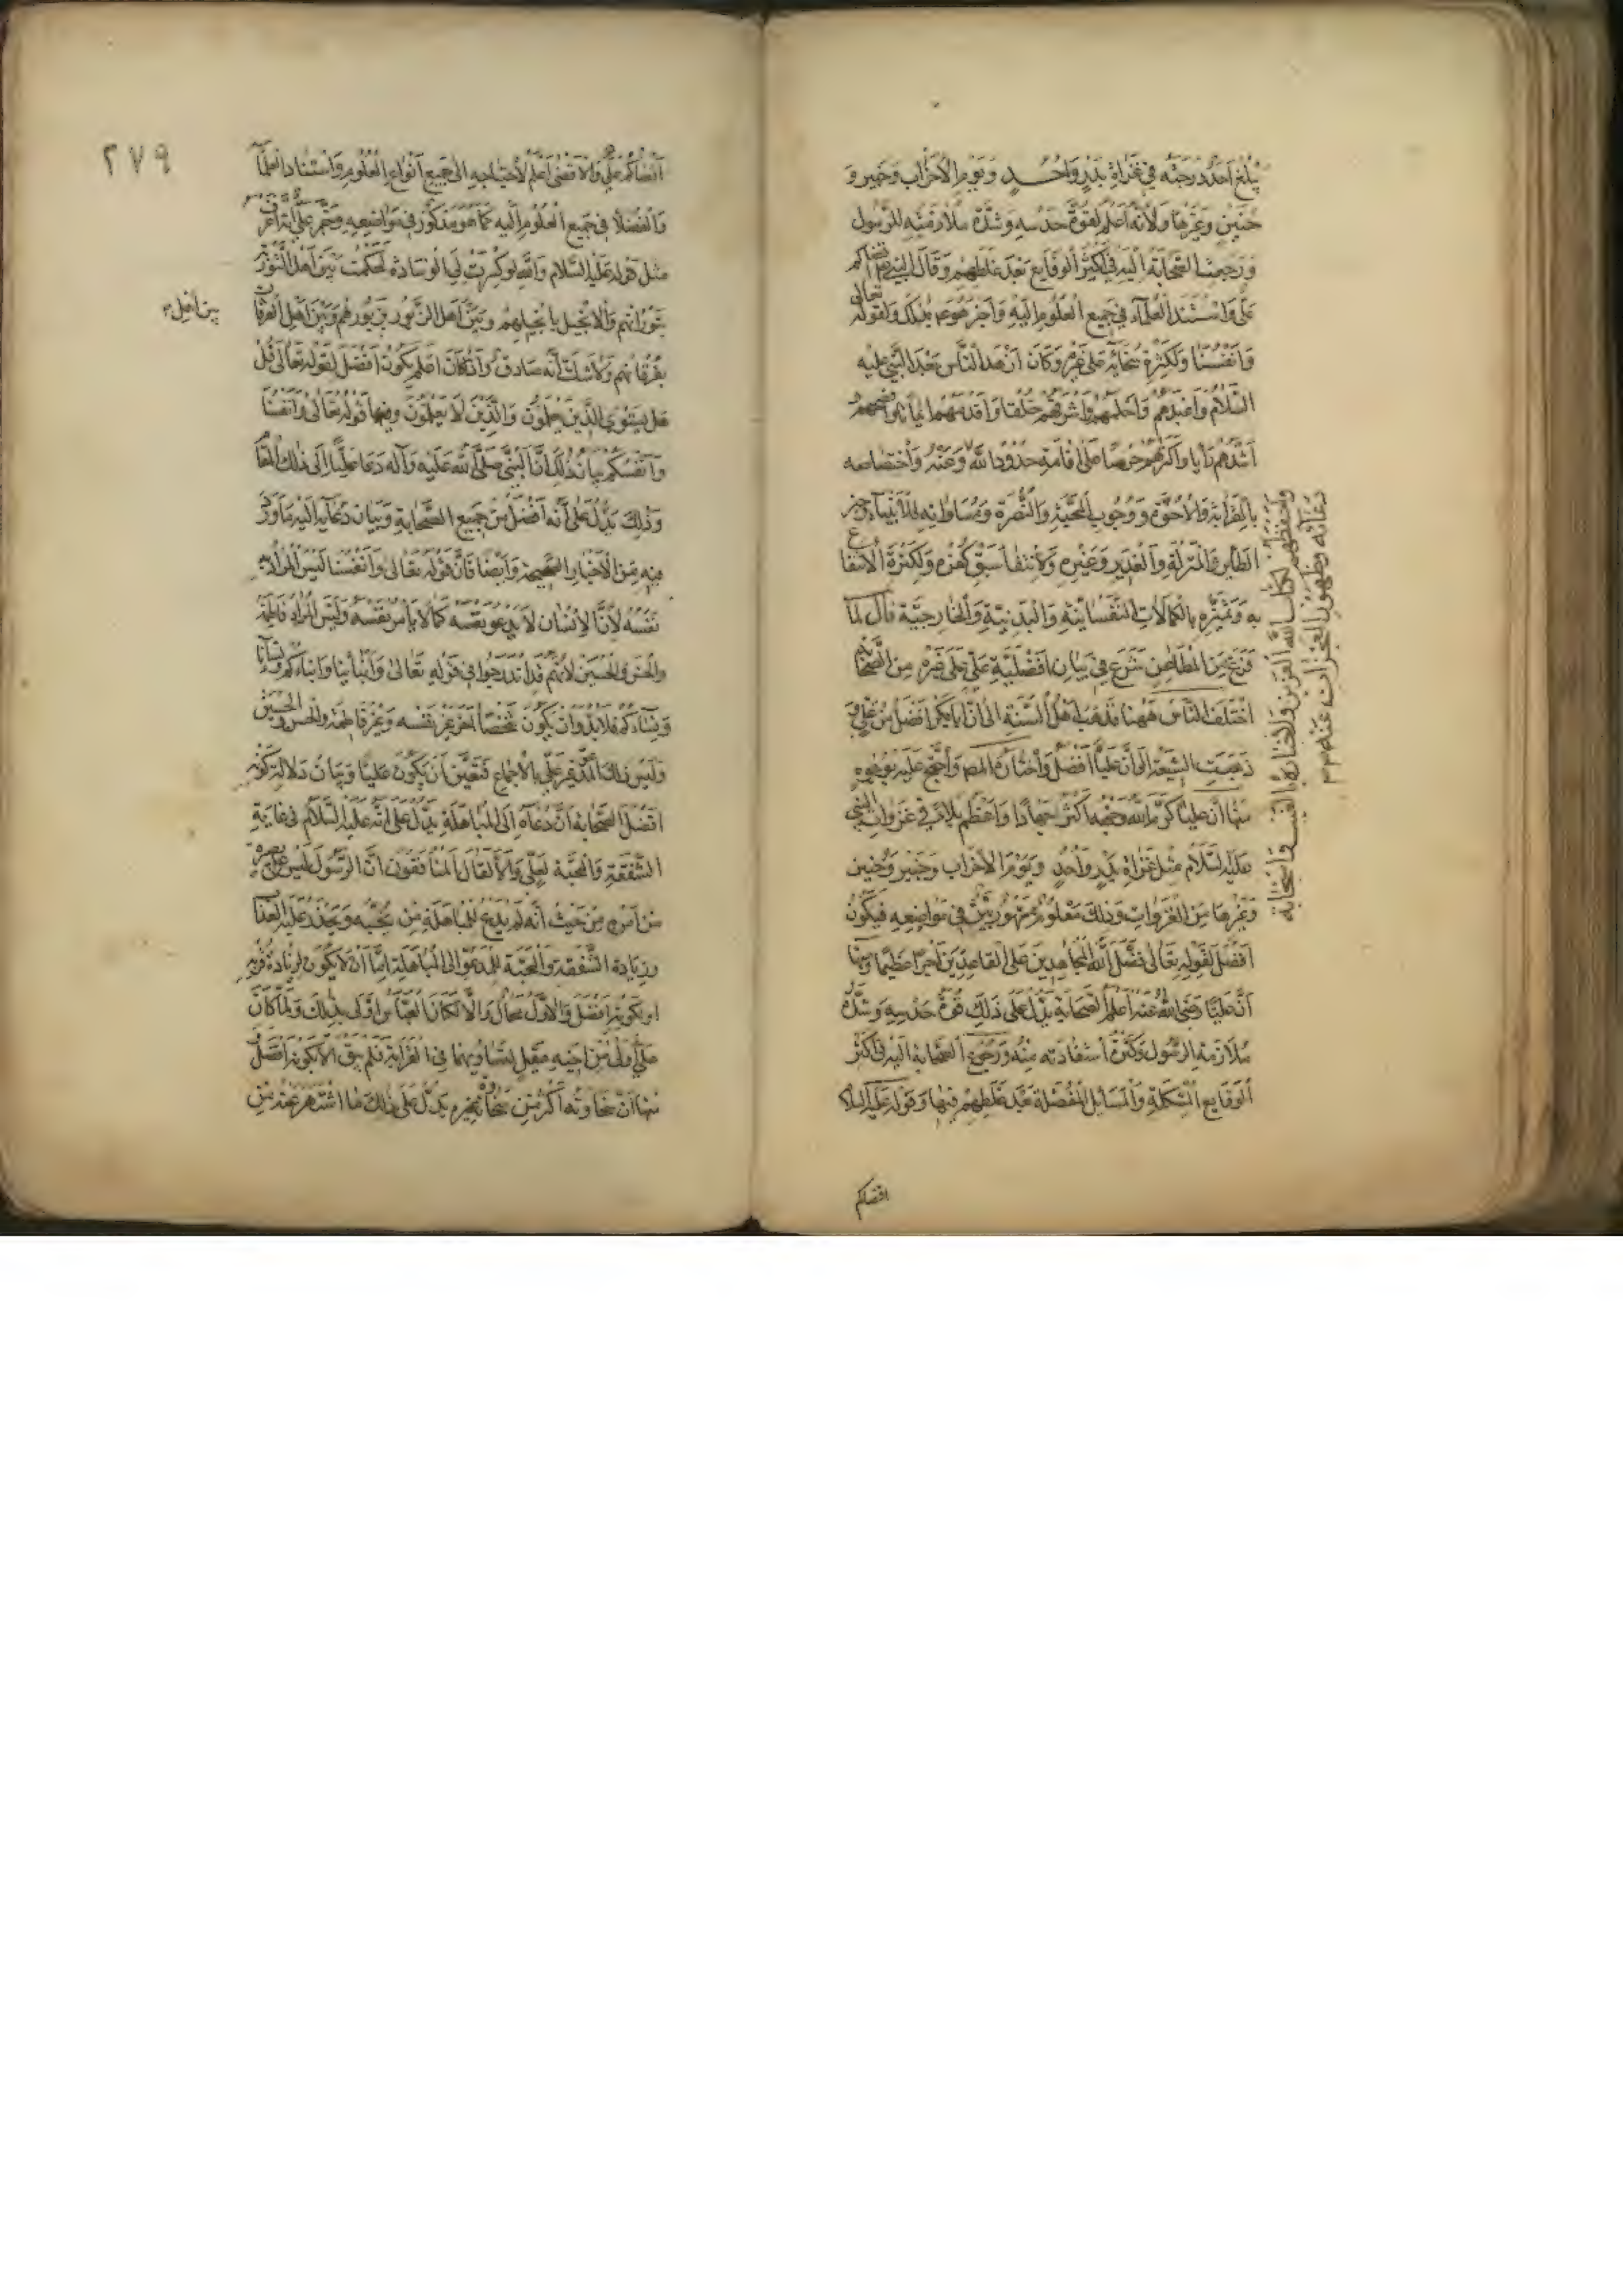 يبلغ احد درجته في غزاة بدر واحد ويوم الاحزاب وخيبر و
حنين وغيرها ولانه اعلم لقوة حدسه وشدة ملازمته للرسول
ورجعت الصحابة اليه في اكثر الوقايع بعد غلطهم وقال النبي اقضاكم
علي واستند العلماء في جميع العلوم اليه واخبر هو عم بذلك ولقوله تعالى
وانفسنا ولكثرة سخائه على غيره وكان ازهد الناس بعد النبي عليه
السلام واعبدهم واحلمهم واشرفهم خلقا واقدمهم ايمانا وافصحهم
اشدهم رأيا واكثرهم حرصا على اقامة حدود الله وعزه واختصاصه
بالقرابة والاخوة ووجوب المحبة والنصرة ومساواته للانبياء وخبر
الطاير والمنزلة والغدير وغيره ولانتفا سبق كفره ولكثرة الانتفاع
به وتميزه بالكمالات النفسانية والبدنية والخارجية قال لما
فرغ من المطاعن شرع في بيان افضلية علي على غيره من الصحابة
اختلف الناس ههنا فذهب اهل السنة الى ان ابا بكر افضل من علي و
ذهبت الشيعة الى ان عليا افضل واختاره المص واحتج عليه بوجوه
منها ان عليا كرم الله وجهه اكثر جهادا واعظم بلاء في غزوات النبي
عليه السلام مثل غزاة بدر واحد ويوم الاحزاب وخيبر وحنين
وغيرها من الغزوات وذلك معلوم مشهور بين في مواضعه فيكون
افضل لقوله تعالى فضل الله المجاهدين على القاعدين اجرا عظيما ومنها
ان عليا رضي الله عنه اعلم الصحابة يدل على ذلك قوة حدسه وشدة
ملازمة الرسول وكثرة استفادته منه ورجوع الصحابة اليه في اكثر
الوقايع المشكلة والمسائل المعضلة بعد غلطهم فيها وقوله عليه السلام
واحفظهم لكتاب الله العزيز ولاخباره واستجابة
دعائه وظهور المعجزات عنه
اقضاكم
٢٧٩
اقضاكم علي والاقضى اعلم لاحتياجه الى جميع انواع العلوم واستناد العلماء
والفضلا في جميع العلوم اليه كما هو مذكور في مواضعه
مثل قوله عليه السلام والله لو كسرت لي الوسادة لحكمت بين اهل التورية
بتوراتهم والانجيل بانجيلهم وبين اهل الزبور بزبورهم وبين اهل الفرقان
بين اهل
بفرقانهم ولا شك انه صادق واذا كان اعلم يكون افضل لقوله تعالى قل
هل يستوي الذين يعلمون والذين لا يعلمون ومنها قوله تعالى وانفسنا
وانفسكم بيان ذلك ان النبي صلى الله عليه وآله دعا عليا الى ذلك المقام
وذلك يدل على انه افضل من جميع الصحابة وبيان دعائه اليه ما ورد
فيه من الاخبار الصحيحة وايضا فان قوله تعالى وانفسنا ليس المراد به
نفسه لان الانسان لا يدعو نفسه كما لا يأمر نفسه وليس المراد فاطمة
والحسن والحسين لانهم قد اندرجوا في قوله تعالى وابنائنا وابناءكم ونساءنا
ونساءكم فلا بد وان يكون شخصا آخر غير نفسه وغير فاطمة والحسن والحسين
وليس ذلك الغير غير علي بالاجماع فتعين ان يكون عليا وبيان دلالة كونه
افضل الصحابة ان دعاه الى المباهلة يدل على انه عليه السلام في غاية
الشفقة والمحبة لعلي والا لقال المنافقون ان الرسول ليس على بصيرة
من امره من حيث انه لم يدع للمباهلة من يحبه ويحذر عليه العذاب
وزيادة الشفقة والمحبة للمدعو الى المباهلة اما ان لا يكون لزيادة قربه
او لكونه افضل والاول محال والا لكان العباس اولى بذلك ولما كان
علي اولى من اخيه عقيل لتساويهما في القرابة فلم يبق الا لكونه افضل
منها ان سخاوته اكثر من سخاوة غيره يدل على ذلك ما اشتهر عنه من